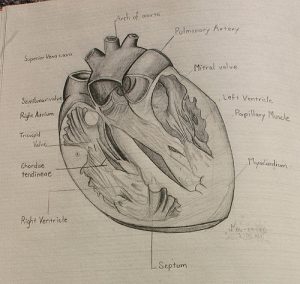 Arch of aorta
Pulmonary Artery
Superior Vena cava
Mitral valve
Semilunar valve
Left Ventricle
Right Atrium
Papillary Muscle
Tricuspid
Valve
Chordae
tendineae
Myocardium
Right Ventricle
Septum